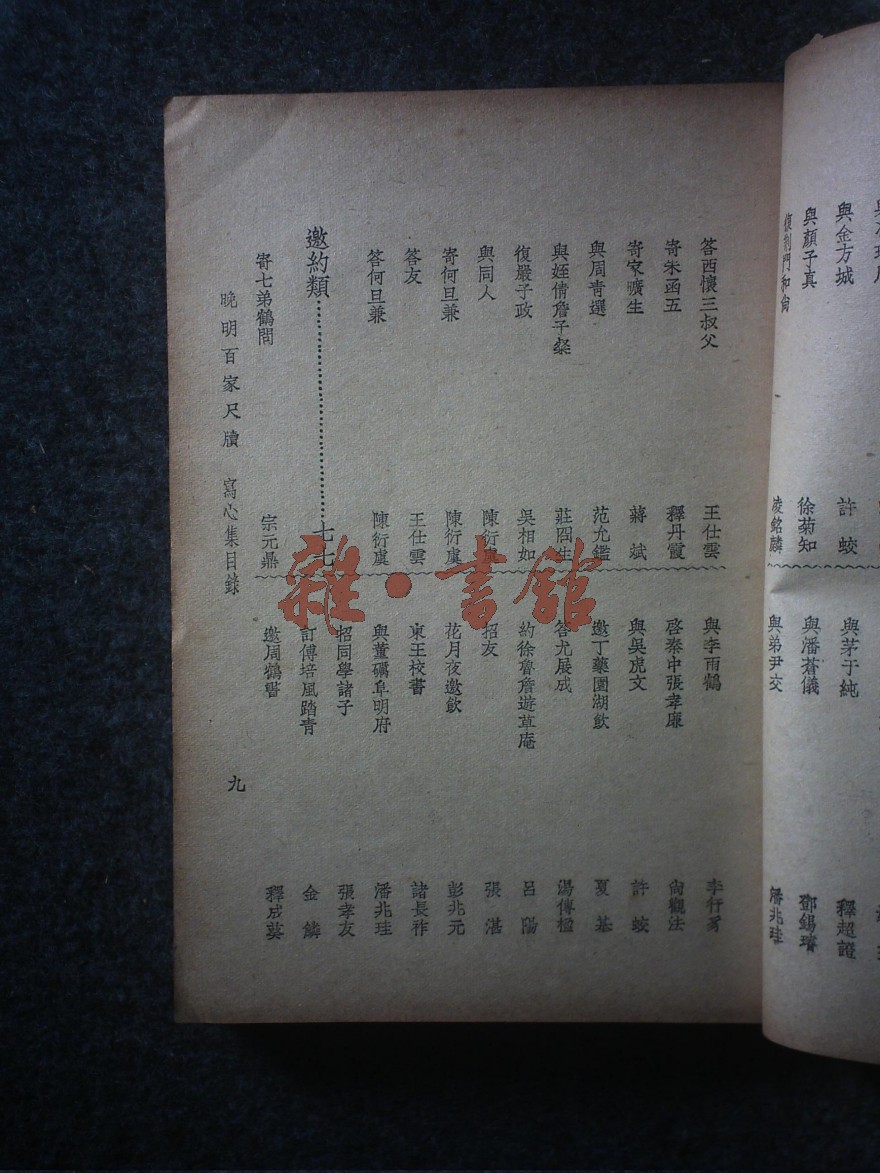 與金方城
許蛟
與顏子真
徐菊知
復荆門和尙
凌銘麟
與茅于純
釋超證
與潘蒼儀
鄧錫璿
與弟尹交
潘兆珪
答西懷三叔父
王仕雲
寄朱函五
釋丹霞
寄家曠生
蔣斌
與周靑選
范允鑑
與姪倩詹子粲
莊囘生
復嚴子政
吳相如
與同人
陳衍虞
寄何旦兼
陳衍虞
答友
王仕雲
答何旦兼
陳衍虞
邀約類⋯⋯⋯⋯⋯⋯⋯⋯七七
寄七弟鶴問
宗元鼎
與李雨鶴
啓秦中張孝廉
尙觀法
與吳虎文
許蛟
邀丁藥園湖飮
夏基
答尤展成
湯傳楹
約徐魯詹遊草庵
呂陽
招友
張湛
花月夜邀飮
彭兆元
柬王校書
諸長祚
與董礪阜明府
潘兆珪
招同學諸子
張孝友
訂傅培風踏靑
金鱗
邀周鶴
釋成
晚明百家尺牘 寫心集目錄
九
雜·書館